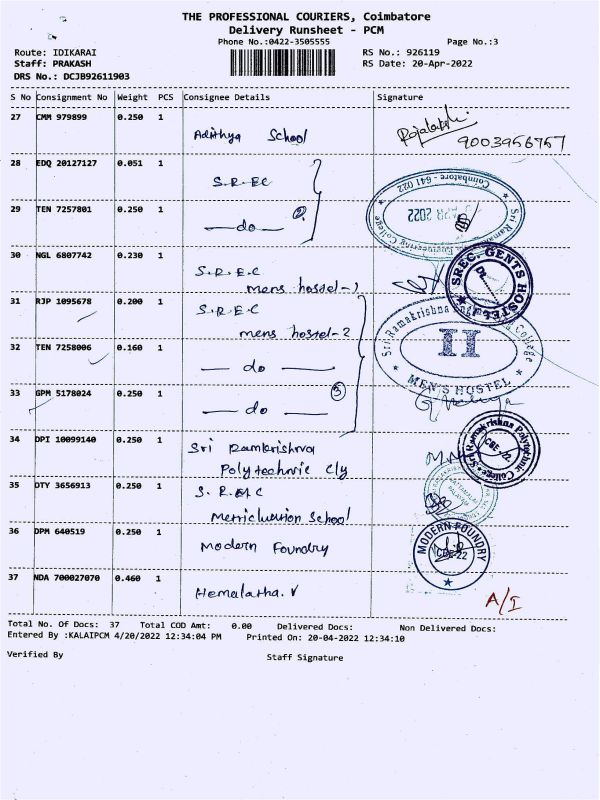 THE PROFESSIONAL COURIERS, Coimbatore
Delivery Runsheet - PCM
Phone No.:0422-3505555
Page No.:3
Route: IDIKARAI
RS No.: 926119
Staff: PRAKASH
RS Date: 20-Apr-2022
DRS No.: DCJB92611903
S No Consignment No Weight PCS Consignee Details Signature
27 CMM 979899 0.250 1 Adithya School
9003956757
28 EDQ 20127127 0.051 1 S.R.EC
Coimbatore - 641 022
APR 2022
Sri Ramakrishna Engineering College
29 TEN 7257801 0.250 1 do 2
30 NGL 6807742 0.230 1 S.R.E.C
mens hostel-1
SREC. GENTS HOSTEL
31 RJP 1095678 0.200 1 S.R.E.C
mens hostel-2
Sri Ramakrishna Engg College
II
MEN'S HOSTEL
32 TEN 7258006 0.160 1 do
33 GPM 5178024 0.250 1 do 3
34 DPI 10099140 0.250 1 Sri Ramkrishna
Polytechnic Clg
Sri Ramakrishna Polytechnic College
CBE-22
35 DTY 3656913 0.250 1 S.R.M.C
Metricluation School
36 DPM 640519 0.250 1 Modern Foundry
MODERN FOUNDRY
CBE-22
37 NDA 700027070 0.460 1 Hemalatha. V
A/I
Total No. Of Docs: 37 Total COD Amt: 0.00 Delivered Docs: Non Delivered Docs:
Entered By :KALAIPCM 4/20/2022 12:34:04 PM Printed On: 20-04-2022 12:34:10
Verified By Staff Signature